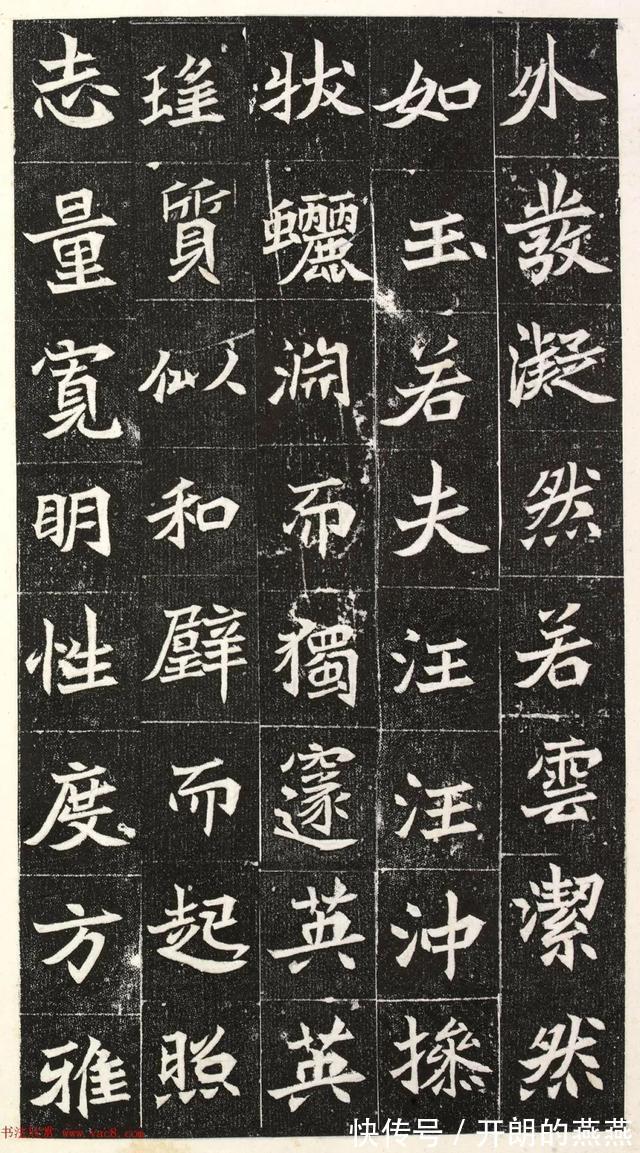 外發凝然若雲潔然
如玉若夫汪汪沖操
狀驪淵而獨邃英英
瑾質似和璧而起照
志量寬明性度方雅
书法欣赏 www.yac8.com
快传号 / 开朗的燕燕